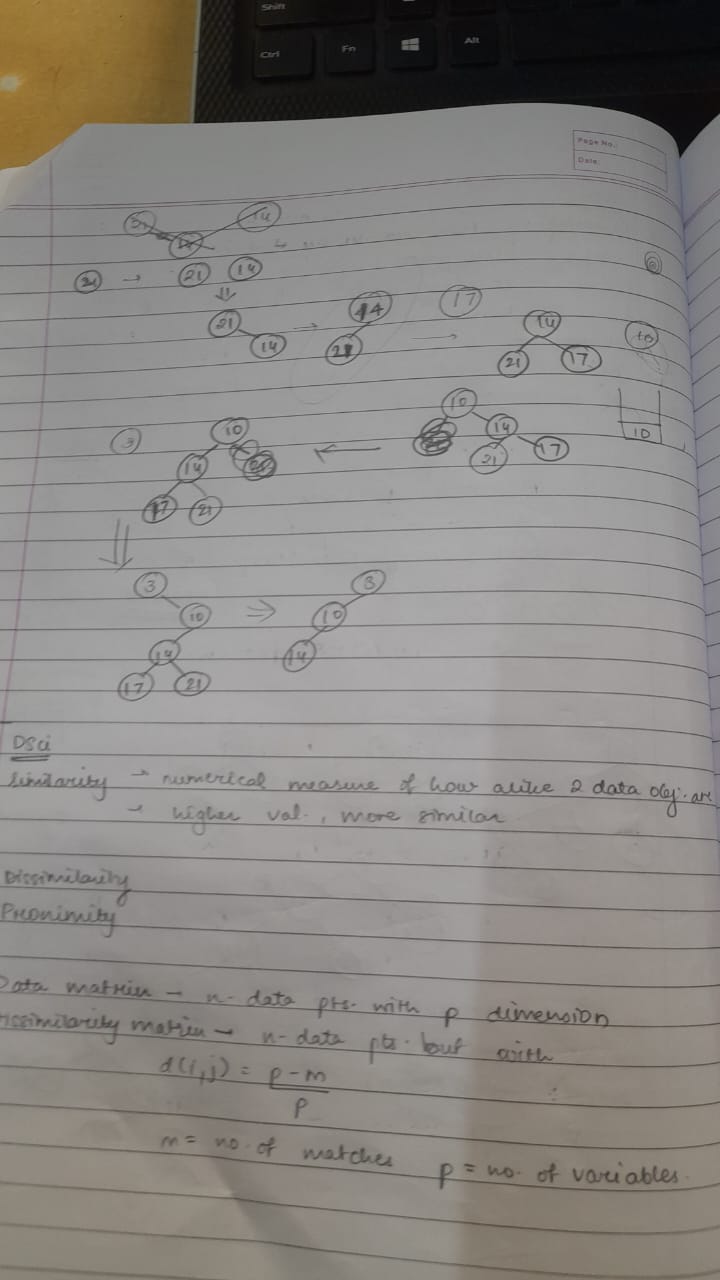 Shift
Ctrl Fn Alt
Page No.:
Date:
14
21 → 21 14
21 14 → 14 21 17 → 14 21 17 10
3 10 14 17 21 ← 10 14 21 17 10
3 10 14 17 21 ⇒ 3 10 14
DSci
Similarity → numerical measure of how alike 2 data obj. are
→ higher val., more similar
Dissimilarity
Proximity
Data matrix → n-data pts. with p dimension
Dissimilarity matrix → n-data pts. but with
d(i,j) = p-m
p
m = no. of matches p = no. of variables.